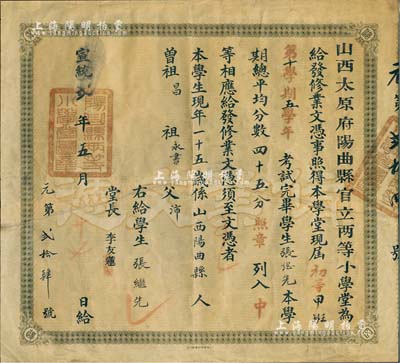 上海陽明拍賣
山西太原府陽曲縣官立兩等小學堂為
給發修業文憑事照得本學堂現屆初等甲班
第十學期五學年考試完畢學生張繼先本學
期總平均分數四十五分照章列入中
等相應給發修業文憑須至文憑者
本學生現年一十五歲係山西陽曲縣人
曾祖昌 祖永書 父沛
右給學生張繼先
堂長李友蓮
宣統弍年五月 日給
元第弍拾肆號